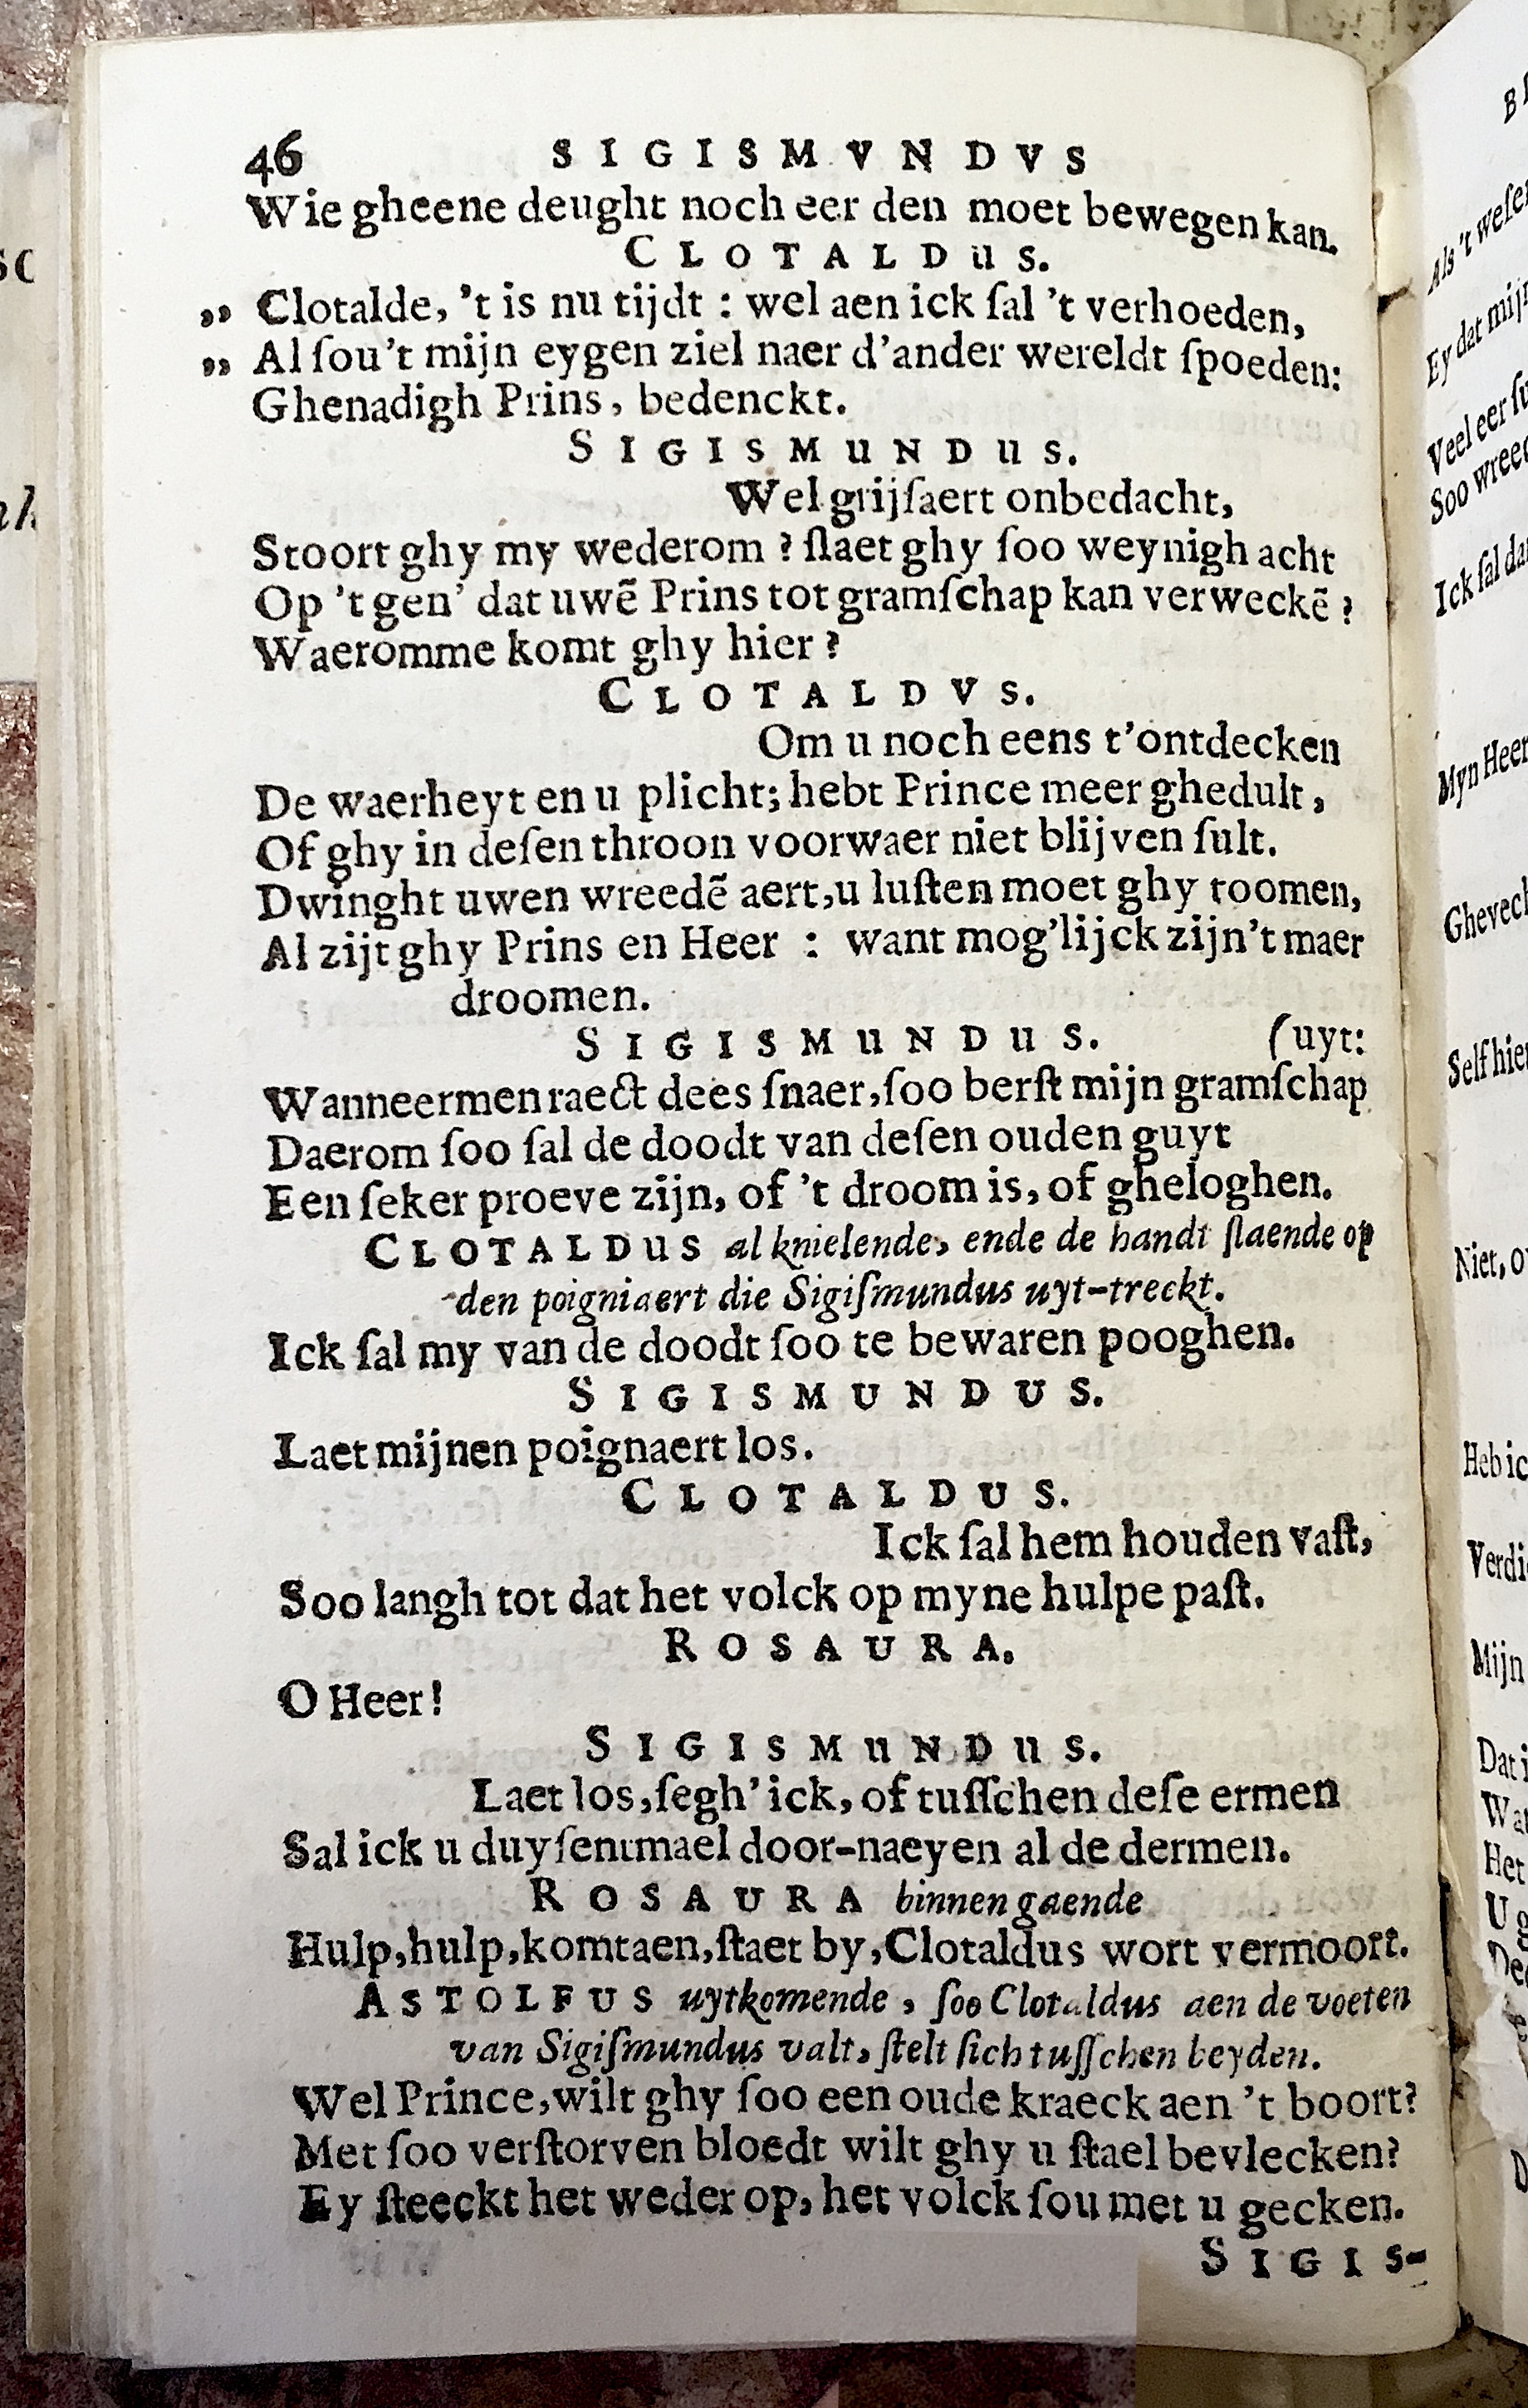 46 SIGISMVNDVS
Wie gheene deught noch eer den moet bewegen kan.
CLOTALDUS.
,, Clotalde, 't is nu tijdt : wel aen ick ſal 't verhoeden,
,, Al ſou't mijn eygen ziel naer d'ander wereldt ſpoeden:
Ghenadigh Prins, bedenckt.
SIGISMUNDUS.
Wel grijſaert onbedacht,
Stoort ghy my wederom ? ſlaet ghy ſoo weynigh acht
Op 't gen' dat uwẽ Prins tot gramſchap kan verweckẽ ?
Waeromme komt ghy hier ?
CLOTALDVS.
Om u noch eens t'ontdecken
De waerheyt en u plicht; hebt Prince meer ghedult,
Of ghy in deſen throon voorwaer niet blijven ſult.
Dwinght uwen wreedẽ aert,u luſten moet ghy toomen,
Al zijt ghy Prins en Heer : want mog'lijck zijn't maer
droomen.
SIGISMUNDUS. (uyt:
Wanneermen raect dees ſnaer,ſoo berſt mijn gramſchap
Daerom ſoo ſal de doodt van deſen ouden guyt
Een ſeker proeve zijn, of 't droom is, of gheloghen.
CLOTALDUS al knielende, ende de handt ſlaende op
den poigniaert die Sigiſmundus uyt-treckt.
Ick ſal my van de doodt ſoo te bewaren pooghen.
SIGISMUNDUS.
Laet mijnen poignaert los.
CLOTALDUS.
Ick ſal hem houden vaſt,
Soo langh tot dat het volck op myne hulpe paſt.
ROSAURA.
O Heer!
SIGISMUNDUS.
Laet los,ſegh' ick, of tuſſchen deſe ermen
Sal ick u duyſentmael door-naeyen al de dermen.
ROSAURA binnen gaende
Hulp,hulp,komt aen,ſtaet by,Clotaldus wort vermoort.
ASTOLFUS uytkomende, ſoo Clotaldus aen de voeten
van Sigiſmundus valt, ſtelt ſich tuſſchen beyden.
Wel Prince,wilt ghy ſoo een oude kraeck aen 't boort?
Met ſoo verſtorven bloedt wilt ghy u ſtael bevlecken?
Ey ſteeckt het weder op, het volck ſou met u gecken.
SIGIS-
Als 't weſe
Ey dat mijn
Veel eer
Soo wree
Ick ſal dan
Myn Heer
Ghevech
Self hier
Niet, o
Heb ic
Verdi
Mijn
Dat i
Wat
Het
U g